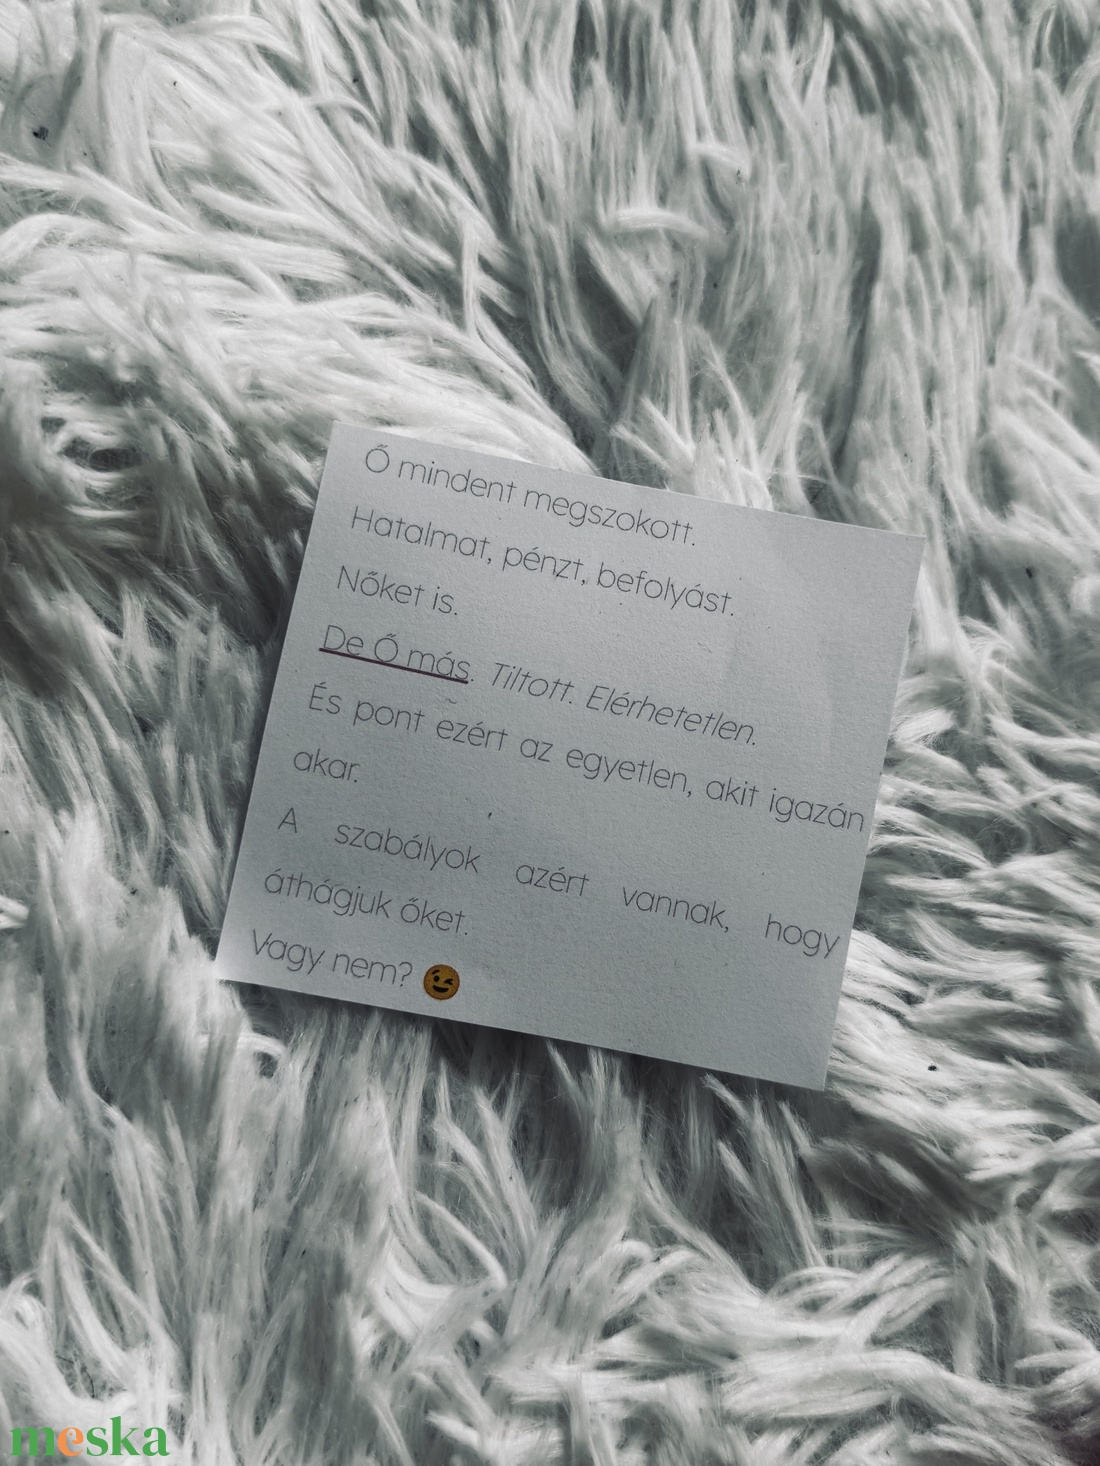 Ő mindent megszokott.
Hatalmat, pénzt, befolyást.
Nőket is.
De Ő más. Tiltott. Elérhetetlen.
És pont ezért az egyetlen, akit igazán
akar.
A szabályok azért vannak, hogy
áthágjuk őket.
Vagy nem? 😉
meska